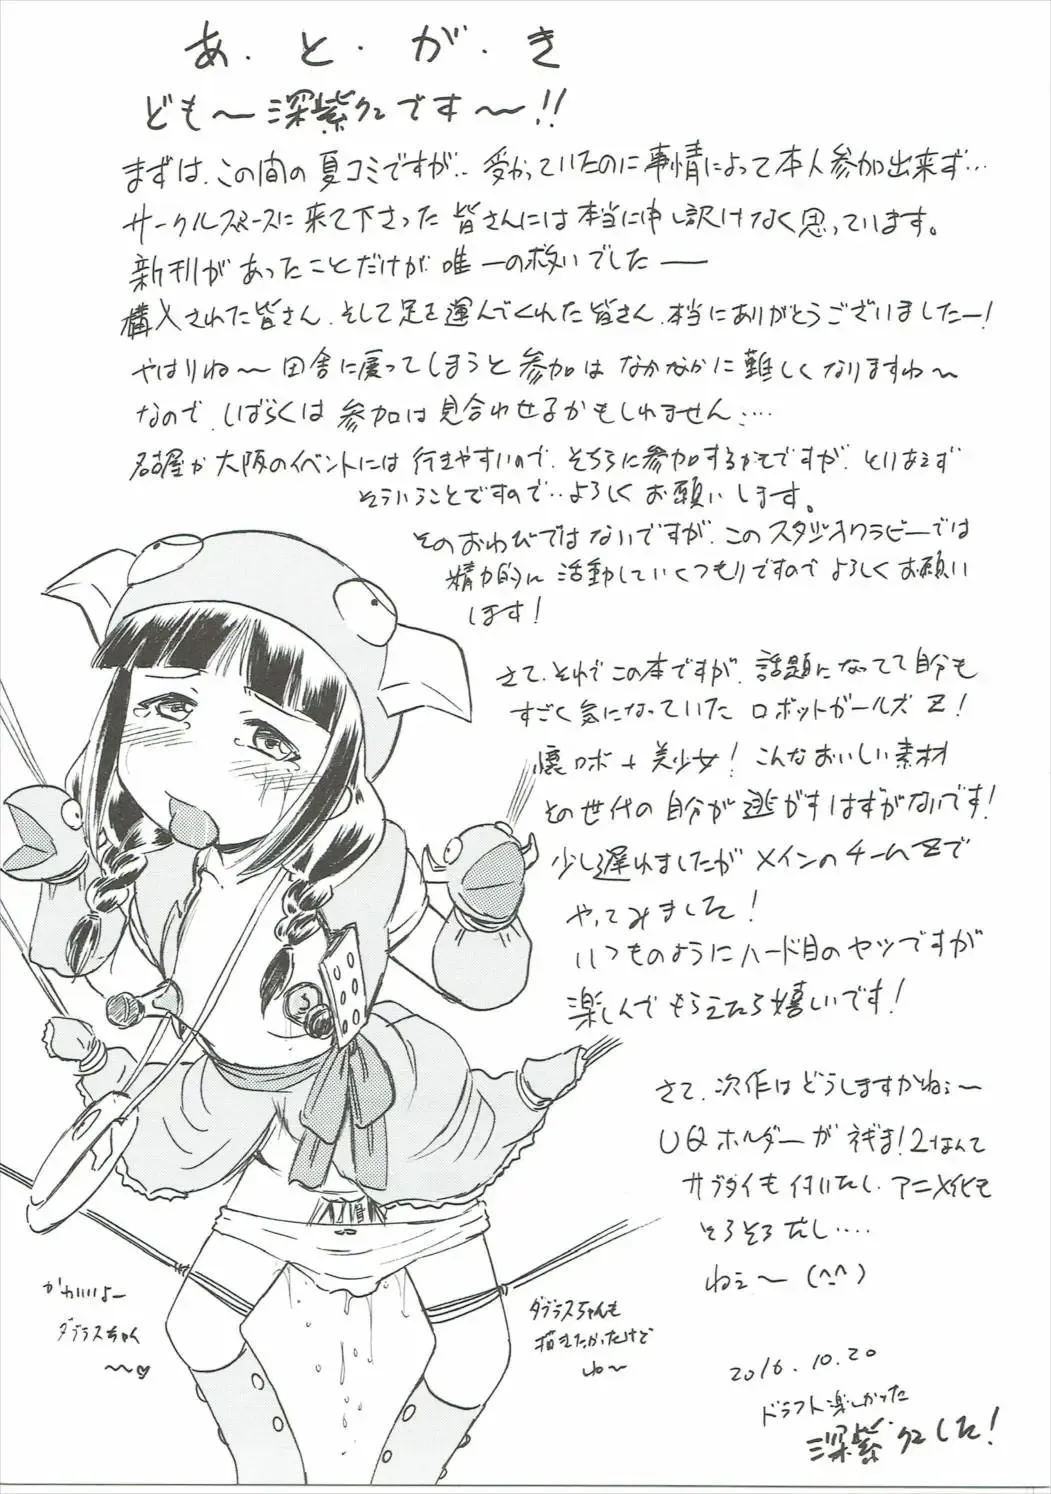 あ・と・が・き
ども～深紫です～!!
まずは、この間の夏コミですが‥受かっていたのに事情によって本人参加出来ず…
サークルスペースに来て下さった皆さんには本当に申し訳けなく思っています。
新刊があったことだけが唯一の救いでした──
購入された皆さん、そして足を運んでくれた皆さん、本当にありがとうございましたー!
やはりね～田舎に戻ってしまうと参加はなかなかに難しくなりますね～
なので、しばらくは参加は見合わせるかもしれません‥‥
名古屋か大阪のイベントには行きやすいので、そちらに参加するかもですが、とりあえず
そういうことですので‥よろしくお願いします。
そのおわびではないですが、このスタジオクラビーでは
精力的に活動していくつもりですのでよろしくお願い
します!
さて、それでこの本ですが、話題になってて自分も
すごく気になっていたロボットガールズZ!
懐ロボ+美少女!こんなおいしい素材
その世代の自分が逃がすはずがないです!
少し遅れましたがメインのチームZで
やってみました!
いつものようにハード目のヤツですが
楽しんでもらえたら嬉しいです!
さて、次作はどうしますかねぇ～
UQホルダーがネギま!2なんて
サブタイも付いたし、アニメ化も
そろそろだし‥‥
ねぇ～(^-^)
かわいいよー
ダブラスちゃん
～～♡
ダブラスちゃんも
描きたかったけど
ね～
2016.10.20
ドラフト楽しかった
深紫でした!